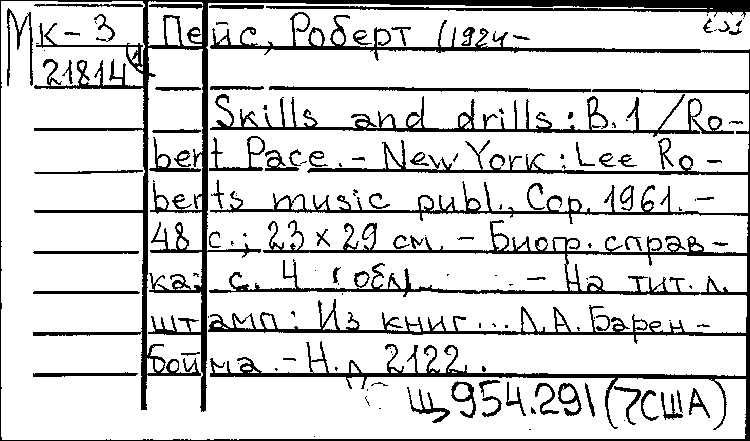 Мк-3 Пейс, Роберт (1924-
21814
Skills and drills : B.1 / Ro-
bert Pace. - New York : Lee Ro-
berts music publ., Cop. 1961. -
48 с.; 23 x 29 см. - Биогр. справ-
ка: с. 4 (обл). - На тит. л.
штамп: Из книг... Л.А. Барен-
бойма. - Н. 2122.
Щ954.291(7США)